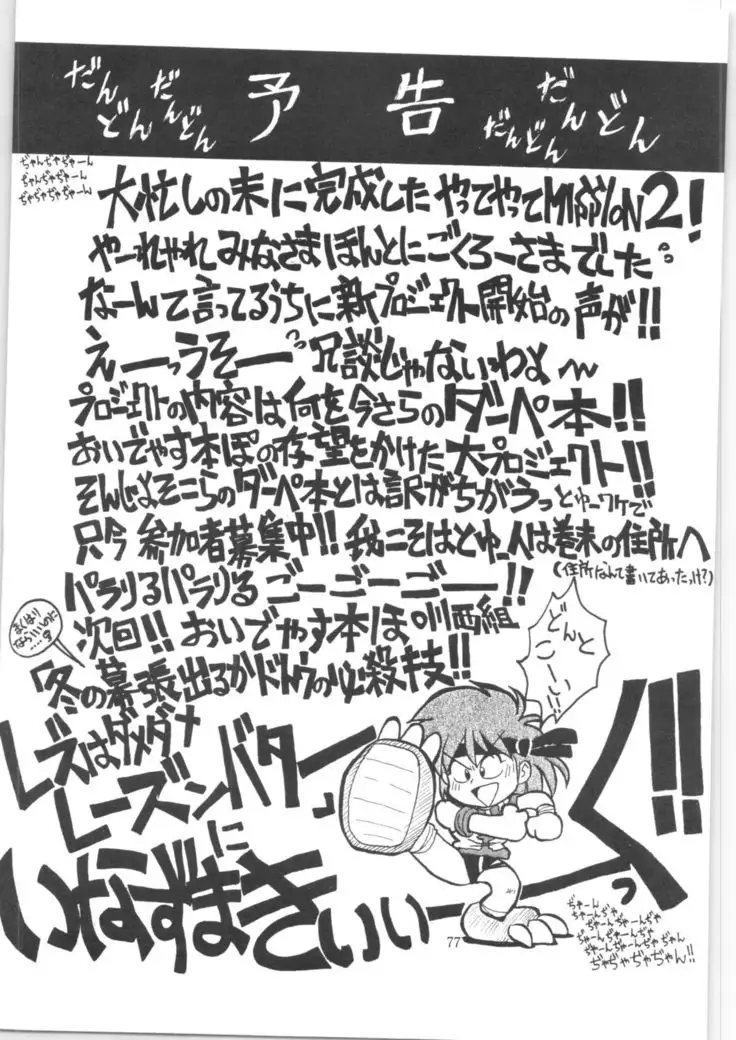 だんどん だんどん 予告 だんどん だんどん
ぢゃんぢゃぢゃーん
ちゃんぢゃぢゃーん
ぢゃぢゃぢゃぢゃーん
大忙しの末に完成した やってやってMISSION2!
やーれやれ みなさまほんとにごくろーさまでした
なーんて言ってるうちに新プロジェクト開始の声が!!
えーーっうそーーっ 冗談じゃないわよ〜
プロジェクトの内容は何を今さらのダーペ本!!
おいでやす本ぽの存望をかけた大プロジェクト!!
そんじょそこらのダーペ本とは訳がちがうっとゆーワケで
只今 参加者募集中!! 我こそはとゆー人は巻末の住所へ
(住所なんて書いてあったっけ?)
パラりるパラりる ごーごーごー!!
次回!! おいでやす本ぽ 川西組
まくはり
ならいいのに
……?
冬の幕張出るかドトウの必殺技!!
どんと
こーい!!
レズはダメダナ
レーズンバターに
いなずまきぃぃーーっく!!
ぢゃーん
ちゃーんぢゃ
ぢゃーんぢゃーんぢゃ
ぢゃーんぢゃーんぢゃ
ぢゃーんぢゃーんぢゃん
ぢゃぢゃぢゃぢゃん!!
77